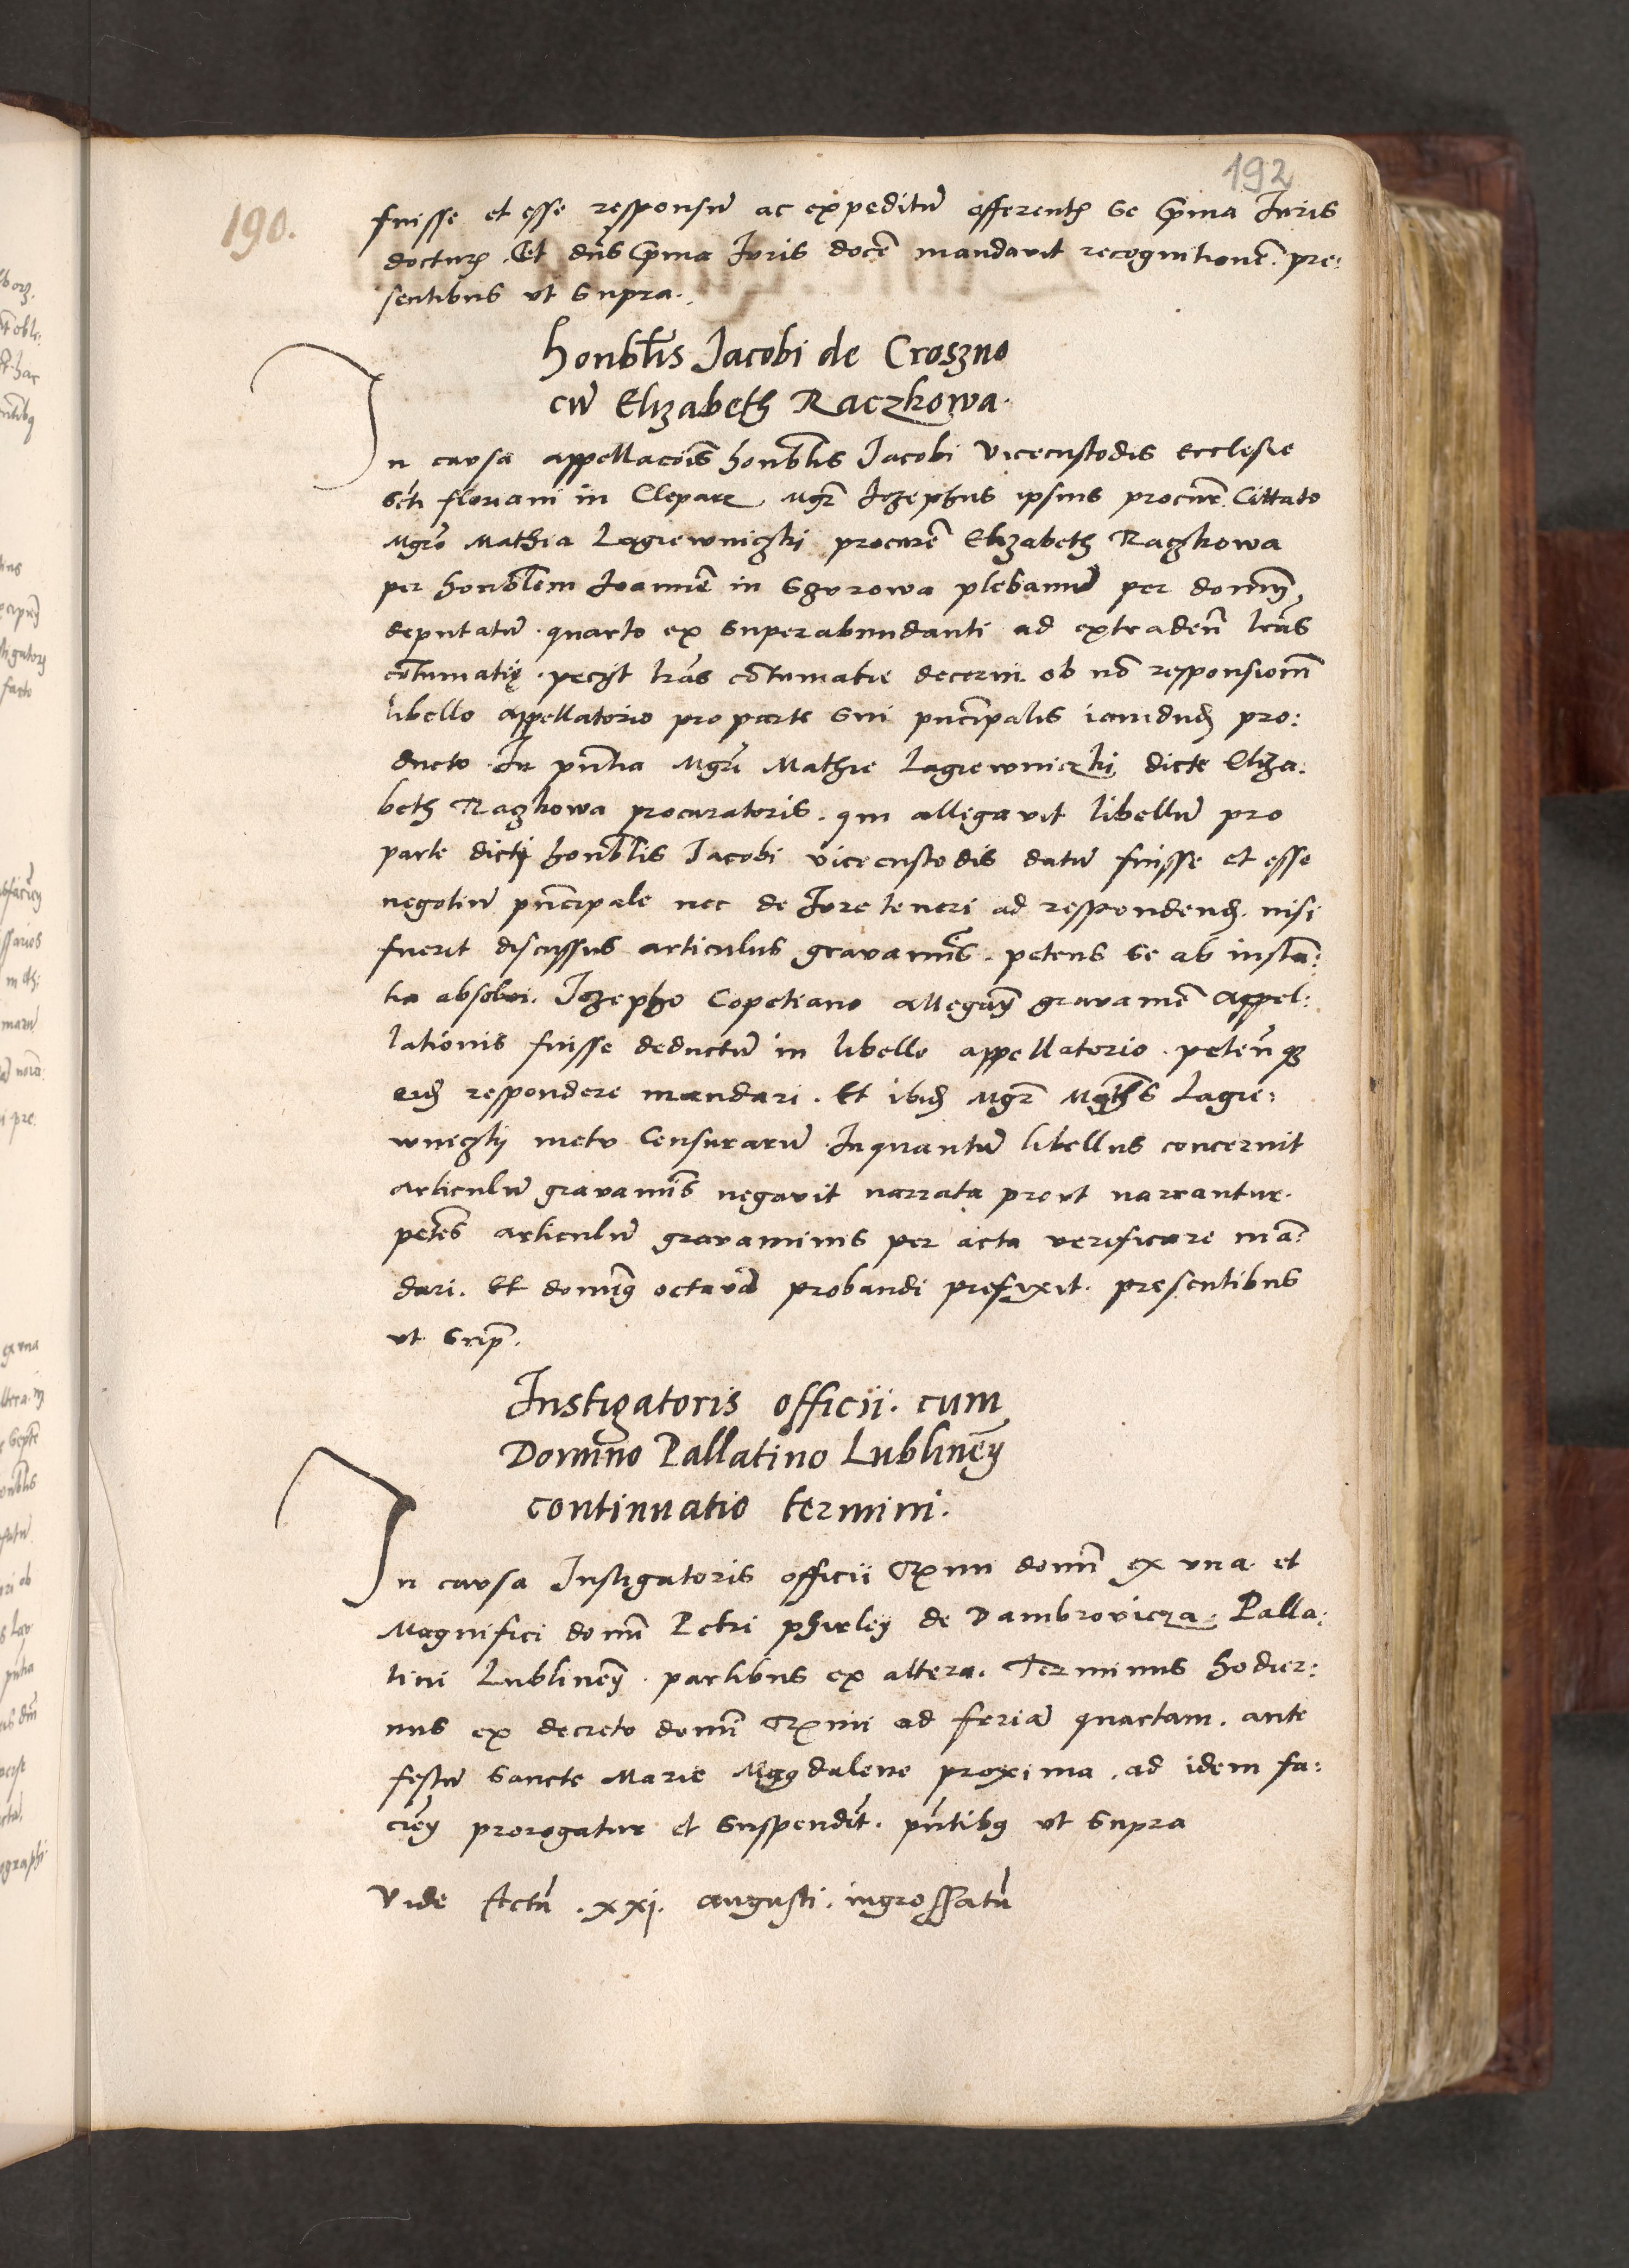 192
190.
fuisse et esse responsũ ac expeditũ offerentẽ se ꝓxima Juris
docturũ. Et dñs ꝓxima Juris docẽ mandavit recognitionẽ. pre:
sentibus ut supra.
honblis Jacobi de Croszno
cũ Elizabeth Raczkowa.
In causa appellacõis honblis Jacobi Vicecustodis ecclesie
scti floriani in Clepar Mgr Jozephus ipsius procurẽ. Cittato
Mgro Mathia Lagiewniczki procurẽ Elizabeth Raczkowa
per honblem Joannẽ in Sgurowa plebanũ per dominũ
deputatũ. quarto ex superabundanti ad extradeñ lras
cõtumatię. peczyt lras cõtumatie decerni ob nõ responsionẽ
libello appellatorio pro parte sui pncipalis iamdudũ pro:
ducto In pñtia Mgri Mathie Lagiewniczki dicte Eliza:
beth Raczkowa procuratoris. qui allegavit libellũ pro
parte dicti honblis Jacobi vicecustodis datũ fuisse et esse
negotiũ pñcipale nec de Jure teneri ad respondendũ. nisi
fuerit discussus articulus gravamĩs. petens se ab instã:
tia absolvi. Jozepho Copetiano allegañ gravamẽ appel:
lationis fuisse deductũ in libello appellatorio. peteñ qz
eidẽ respondere mandari. Et ibidẽ Mgr Maths Lagie:
wniczky metu Censurarũ. Inquantũ libellus concernit
articulũ gravamĩs negavit narrata prout narrantur.
petẽs articulũ gravaminis per acta verificare mã:
dari. Et dominus octavã probandi prefixit. presentibus
ut sup.
Instigatoris officii. cum
Domino Pallatino Lublineñ
continuatio termini.
In causa Instigatoris officii Rmi domi ex una. et
Magnifici domi Petri phirley de Dambrovicza. Palla:
tini Lublineñ. partibus ex altera. Terminus hodier:
nus ex decreto domi Rmi ad feriã quartam. ante
festũ Sancte Marie Magdalene proxima. ad idem fa:
cieñ prorogatur et suspendit. pñtibus ut supra
Vide Actũ. xxj. augusti. ingrossatũ